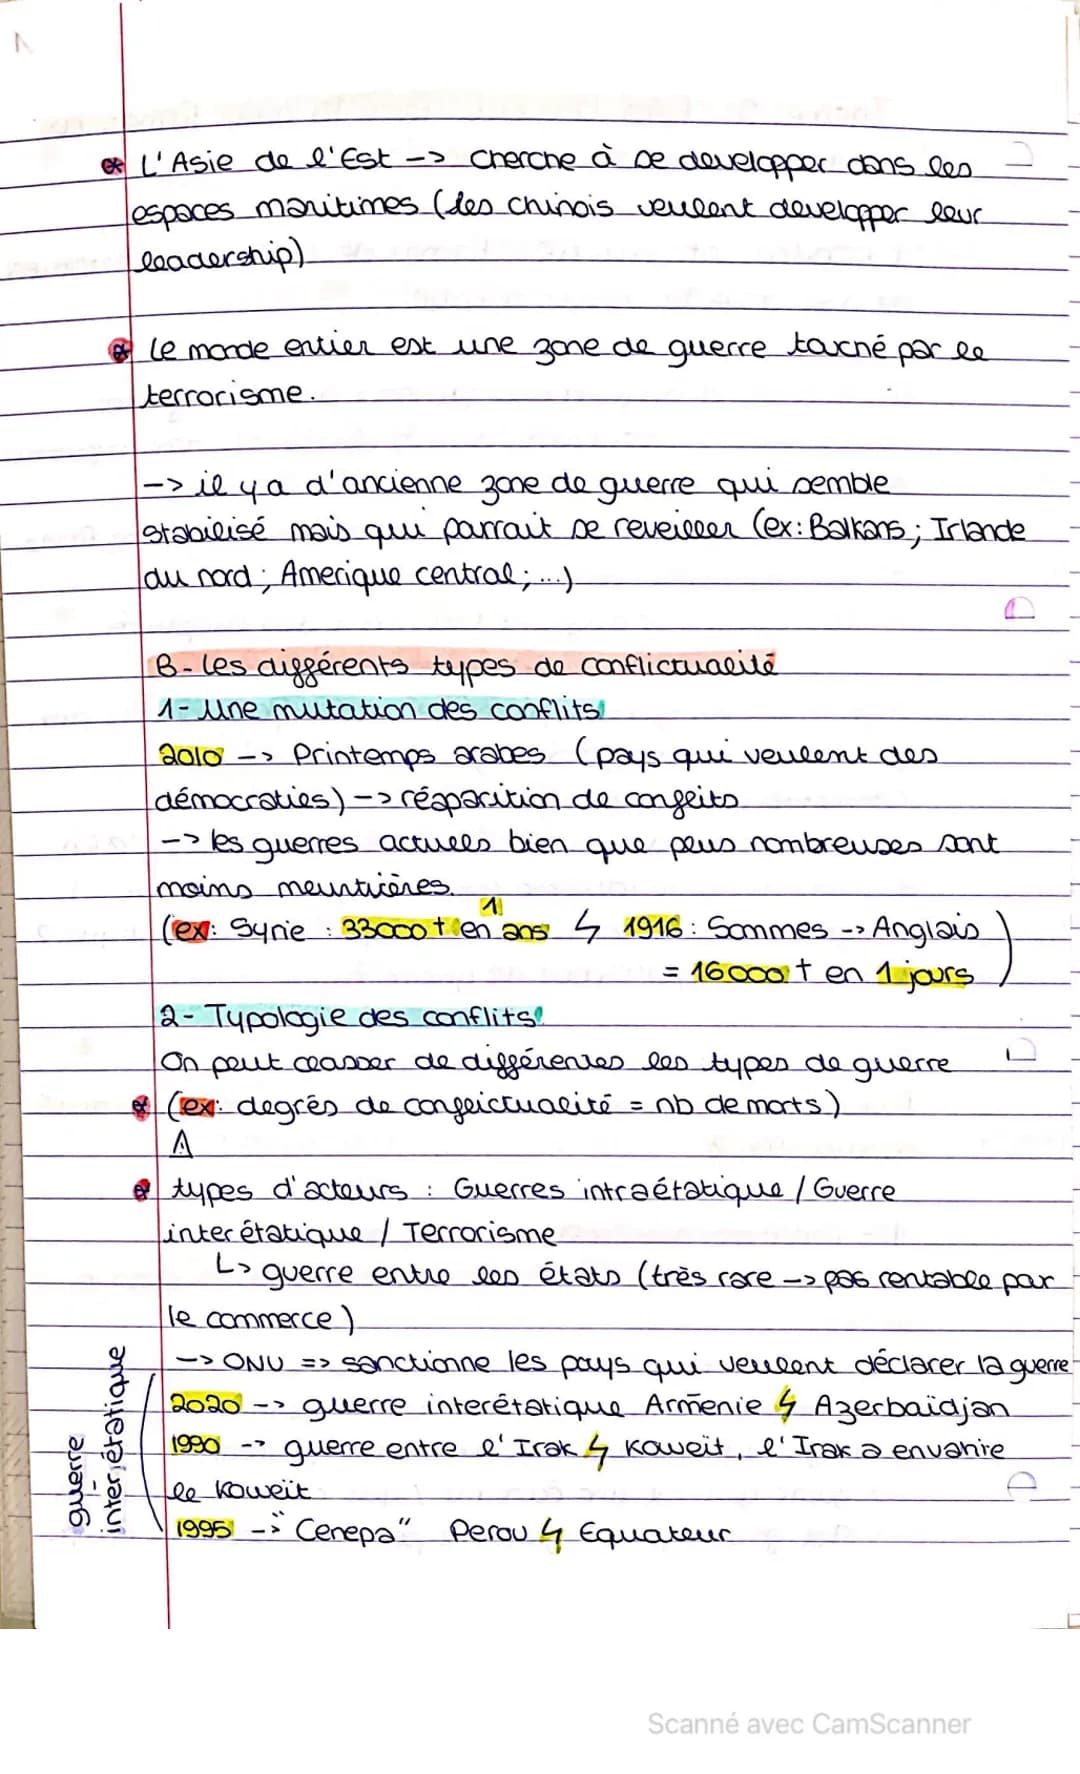 L'Asie de l'Est -> cherche à se developper dans les
espaces maritimes (les chinois veulent developper leur
leadership)
Le monde entier est une zone de guerre tourné par le
terrorisme.
-> il y a d'ancienne zone de guerre qui semble
stabilisé mais qui parrait se reveiller (ex: Balkans ; Irlande
du nord ; Amerique central ; ...)
B - Les différents types de conflictualité
1 - Une mutation des conflits
2010 -> Printemps arabes (pays qui veulent des
démocraties) -> réaparition de conflits
-> les guerres actuelles bien que plus nombreuses sont
moins meurtrières.
(ex: Syrie : 33000 † en 1 ans ϟ 1916 : Sommes -> Anglais
= 16000 † en 1 jours)
2 - Typologie des conflits
On peut classer de différentes les types de guerre
(ex: degrés de conflictualité = nb de morts)
A
types d'acteurs : Guerres intraétatique / Guerre
interétatique / Terrorisme
↳ guerre entre les états (très rare -> pas rentable par
le commerce)
-> ONU => sanctionne les pays qui veulent déclarer la guerre
guerre interétatique
2020 -> guerre interétatique Arménie ϟ Azerbaïdjan
1990 -> guerre entre l'Irak ϟ Koweit, l'Irak a envahie
le Koweït
1995 -> "Cenepa" Perou ϟ Equateur
Scanné avec CamScanner